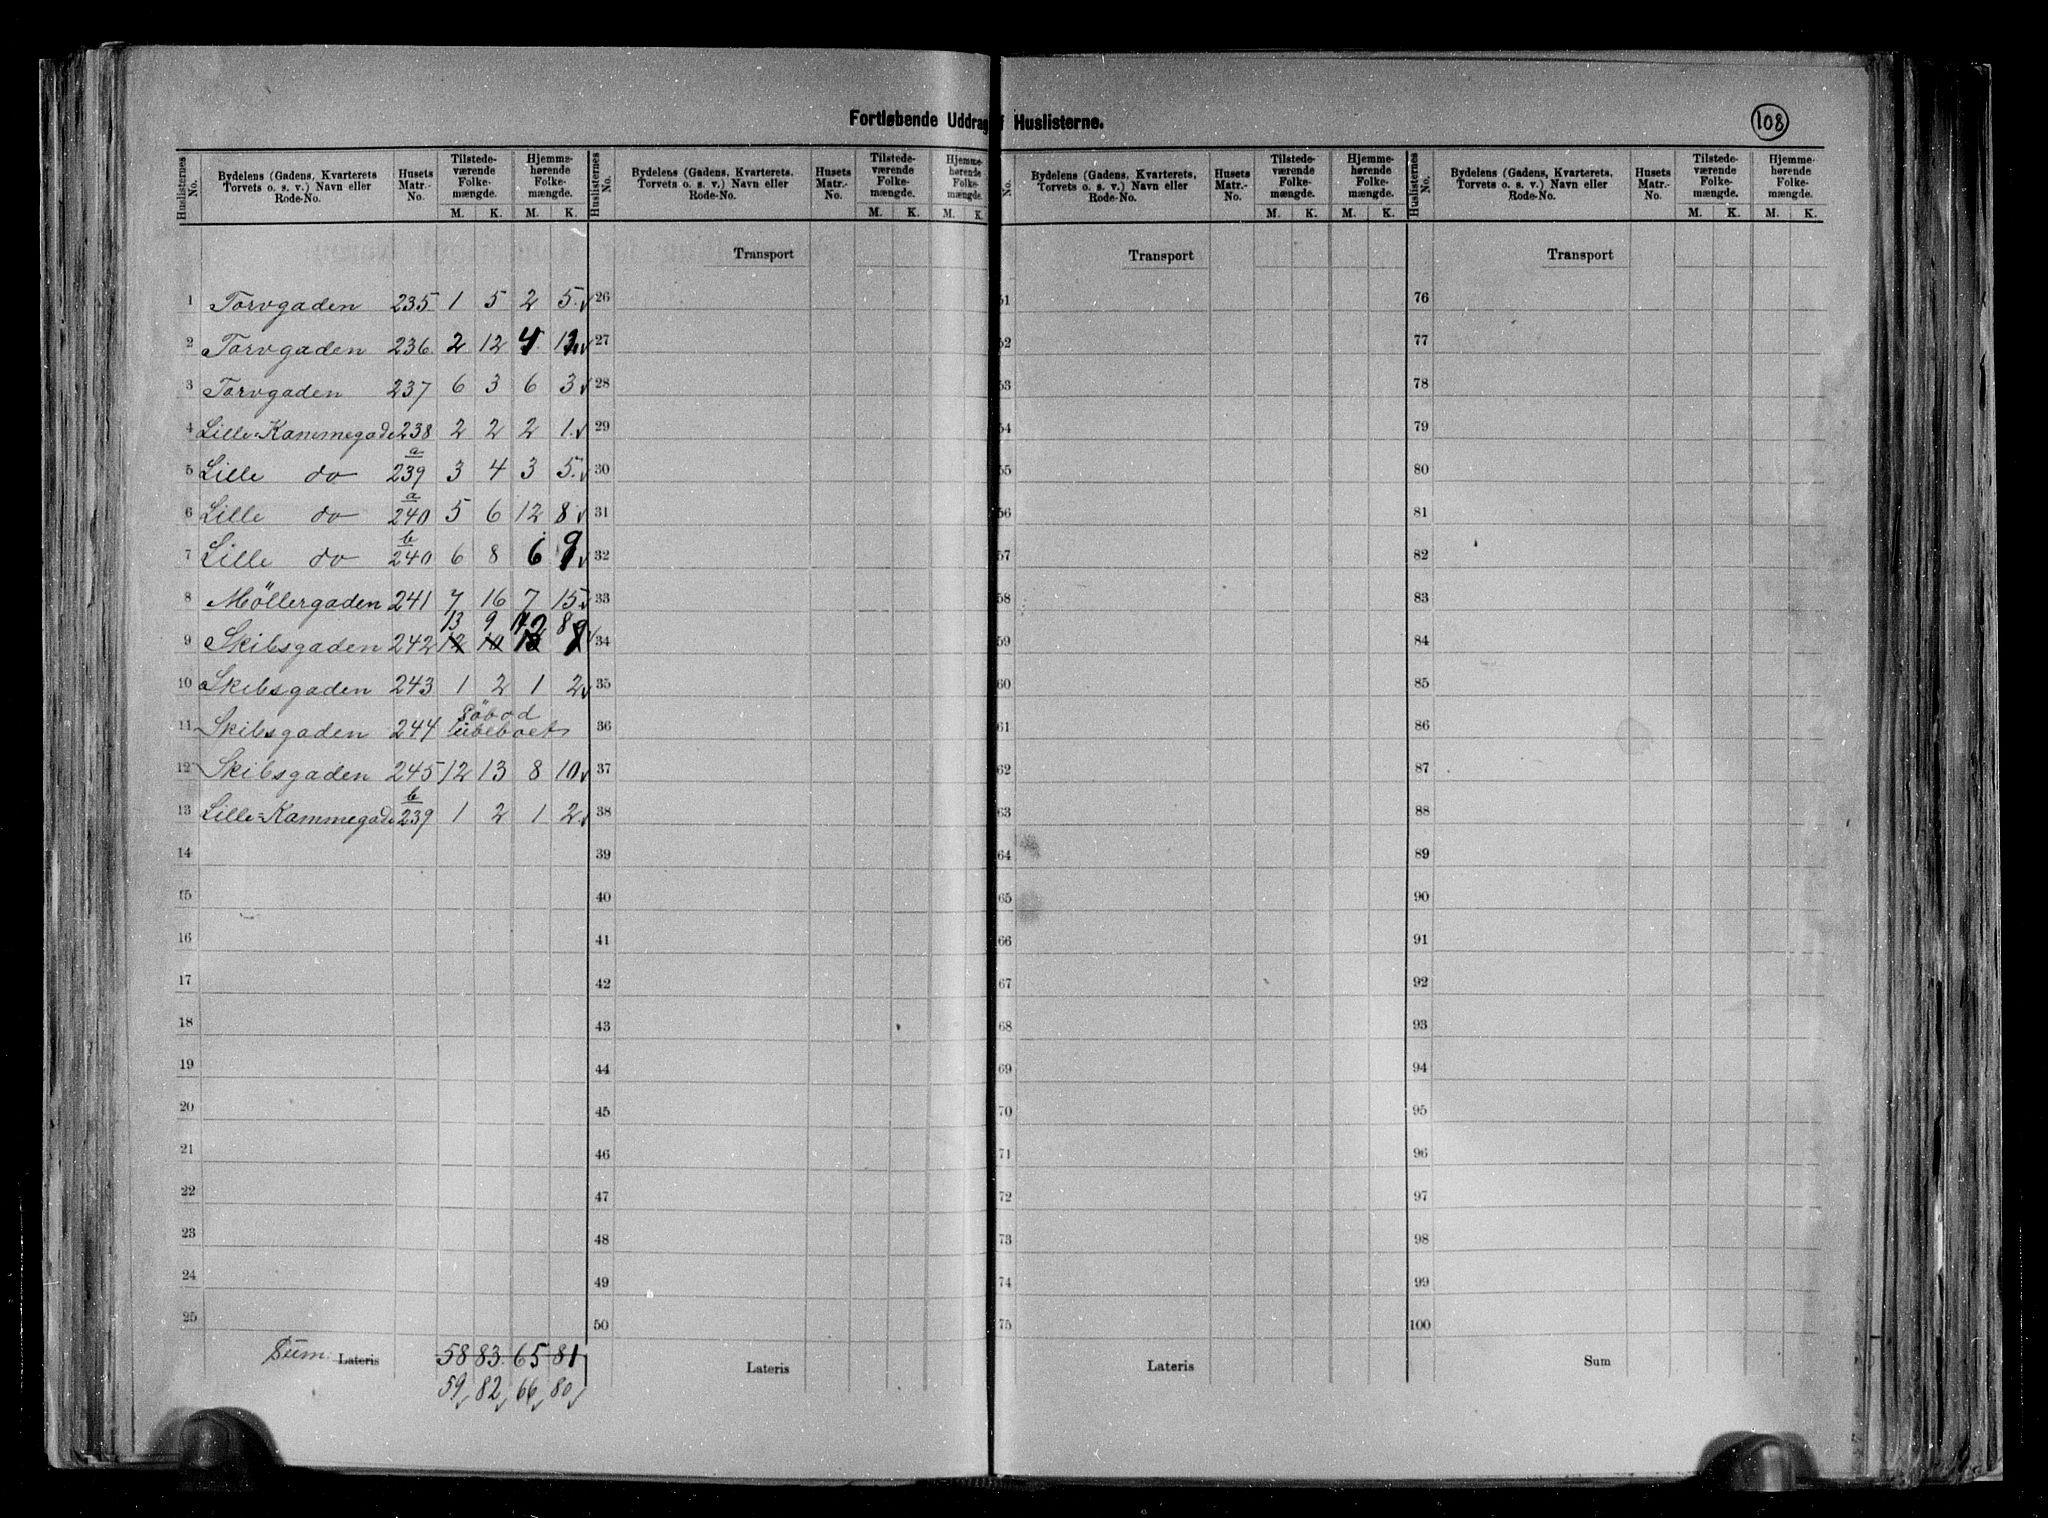 Fortløbende Uddrag f Huslisterne.
108
Huslisternes No. Bydelens (Gadens, Kvarterets, Torvets o. s. v.) Navn eller Rode-No. Husets Matr.-No. Tilstede-værende Folke-mængde. M. K. Hjemme-hørende Folke-mængde. M. K.
Huslisternes No. Bydelens (Gadens, Kvarterets, Torvets o. s. v.) Navn eller Rode-No. Husets Matr.-No. Tilstede-værende Folke-mængde. M. K. Hjemme-hørende Folke-mængde. M. K.
No. Bydelens (Gadens, Kvarterets, Torvets o. s. v.) Navn eller Rode-No. Husets Matr.-No. Tilstede-værende Folke-mængde. M. K. Hjemme-hørende Folke-mængde. M. K.
Huslisternes No. Bydelens (Gadens, Kvarterets, Torvets o. s. v.) Navn eller Rode-No. Husets Matr.-No. Tilstede-værende Folke-mængde. M. K. Hjemme-hørende Folke-mængde. M. K.
Transport Transport Transport
1 Torvgaden 235 1 5 2 5 26 51 76
2 Torvgaden 236 2 12 4 13 27 52 77
3 Torvgaden 237 6 3 6 3 28 53 78
4 Lille-Kammegade 238 2 2 2 1 29 54 79
5 Lille do 239 a 3 4 3 5 30 55 80
6 Lille do 240 a 5 6 12 8 31 56 81
7 Lille do 240 b 6 8 6 9 32 57 82
8 Möllergaden 241 7 16 7 15 33 58 83
13 9 12 8
9 Skibsgaden 242 12 10 34 59 84
10 Skibsgaden 243 1 2 1 2 35 60 85
11 Skibsgaden 244 Söbod ubeboet 36 61 86
12 Skibsgaden 245 12 13 8 10 37 62 87
13 Lille-Kammegade 239 b 1 2 1 2 38 63 88
14 39 64 89
15 40 65 90
16 41 66 91
17 42 67 92
18 43 68 93
19 44 69 94
20 45 70 95
21 46 71 96
22 47 72 97
23 48 73 98
24 49 74 99
25 50 75 100
Sum. Lateris 58 83 65 81 Lateris Lateris Sum
59 82 66 80